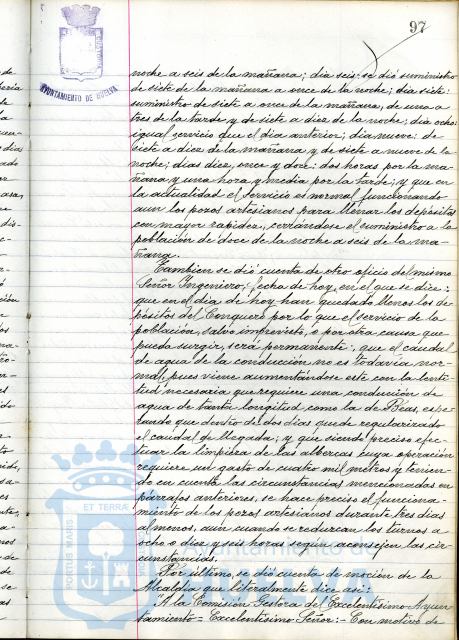 97
AYUNTAMIENTO DE HUELVA
noche a seis de la mañana; dia seis: se dió suministro
de siete de la mañana a once de la noche; dia siete:
suministro de siete a once de la mañana, de una a
tres de la tarde y de siete a diez de la noche; dia ocho:
igual servicio que el dia anterior; dia nueve: de
siete a diez de la mañana y de siete a nueve de la
noche; dias diez, once y doce: dos horas por la ma-
ñana y una hora y media por la tarde; y que en
la actualidad el servicio es normal funcionando
aun los pozos artesianos para llenar los depósitos
con mayor rapidez, cerrándose el suministro a la
población de doce de la noche a seis de la ma-
ñana.
Tambien se dió cuenta de otro oficio del mismo
Señor Ingeniero, fecha de hoy, en el que se dice:
que en el dia de hoy han quedado llenos los de-
pósitos del Conquero por lo que el servicio de la
población, salvo imprevisto, o por otra causa que
pueda surgir, será permanente; que el caudal
de agua de la conducción no es todavía nor-
mal, pues viene aumentándose este con la lenti-
tud necesaria que requiere una conducción de
agua de tanta longitud como la de Beas, espe-
rando que dentro de dos dias quede regularizado
el caudal de llegada; y que siendo preciso efec-
tuar la limpieza de las albercas cuya operación
requiere un gasto de cuatro mil metros y tenien-
do en cuenta las circunstancias mencionadas en
párrafos anteriores, se hace preciso el funciona-
miento de los pozos artesianos durante tres dias
al menos, aun cuando se reduzcan los turnos a
ocho o diez y seis horas según aconsejen las cir-
cunstancias.
Por último, se dió cuenta de moción de la
Alcaldia que literalmente dice así:
"A la Comisión Gestora del Excelentísimo Ayun-
tamiento = Excelentísimo Señor:- Con motivo de
PORTUS MARIS ET TERRAE
Ayuntamiento de